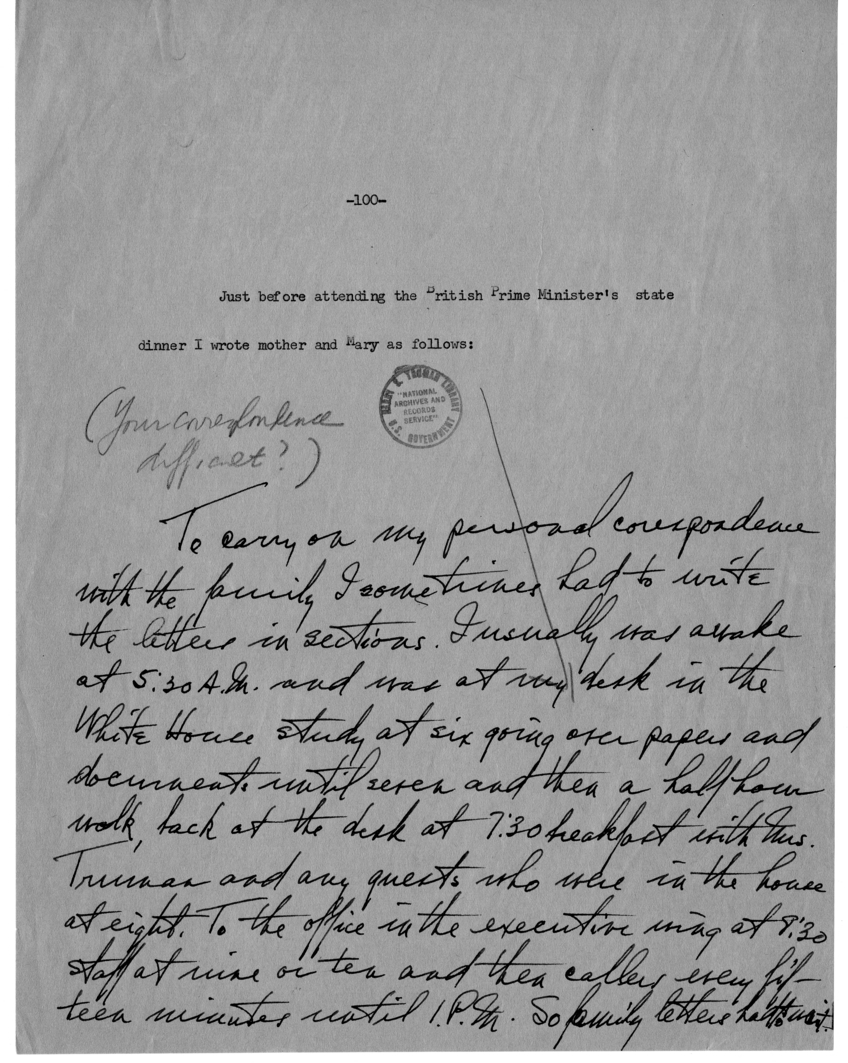 -100-
Just before attending the British Prime Minister's state
dinner I wrote mother and Mary as follows:
HARRY S. TRUMAN LIBRARY
"NATIONAL
ARCHIVES AND
RECORDS
SERVICE"
U.S. GOVERNMENT
(Your correspondence
difficult?)
To carry on my personal corespondence
with the family I sometimes had to write
the letters in sections. I usually was awake
at 5:30 A.M. and was at my desk in the
White House study at six going over papers and
documents until seven and then a half hour
walk, back at the desk at 7:30 breakfast with Mrs.
Truman and any guests who were in the house
at eight. To the office in the executive wing at 8:30
staff at nine or ten and then callers every fif-
teen minutes until 1.P.M. So family letters had to wait.